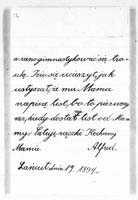 a rano gimnastykować się tro-
szkę. Tzio się ucieszył, jak
usłyszał, że mu Mama
napisze list, bo to pierwszy
raz, kiedy dostał list od Ma-
my. Całuję rączki Kochanej
Mamie Alfred.
Łańcut dnia 19 1894.